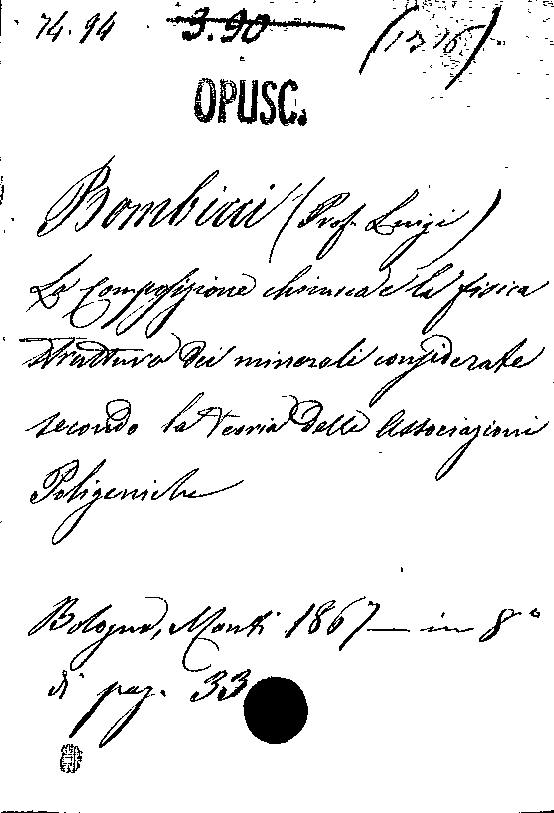 74.94 3.90 (1316)
OPUSC.
Bombicci (Prof. Luigi)
La Composizione chimica e la fisica
struttura dei minerali considerate
secondo la teoria delle Associazioni
Poligeniche
Bologna, Monti 1867 — in 8°
di pag. 33